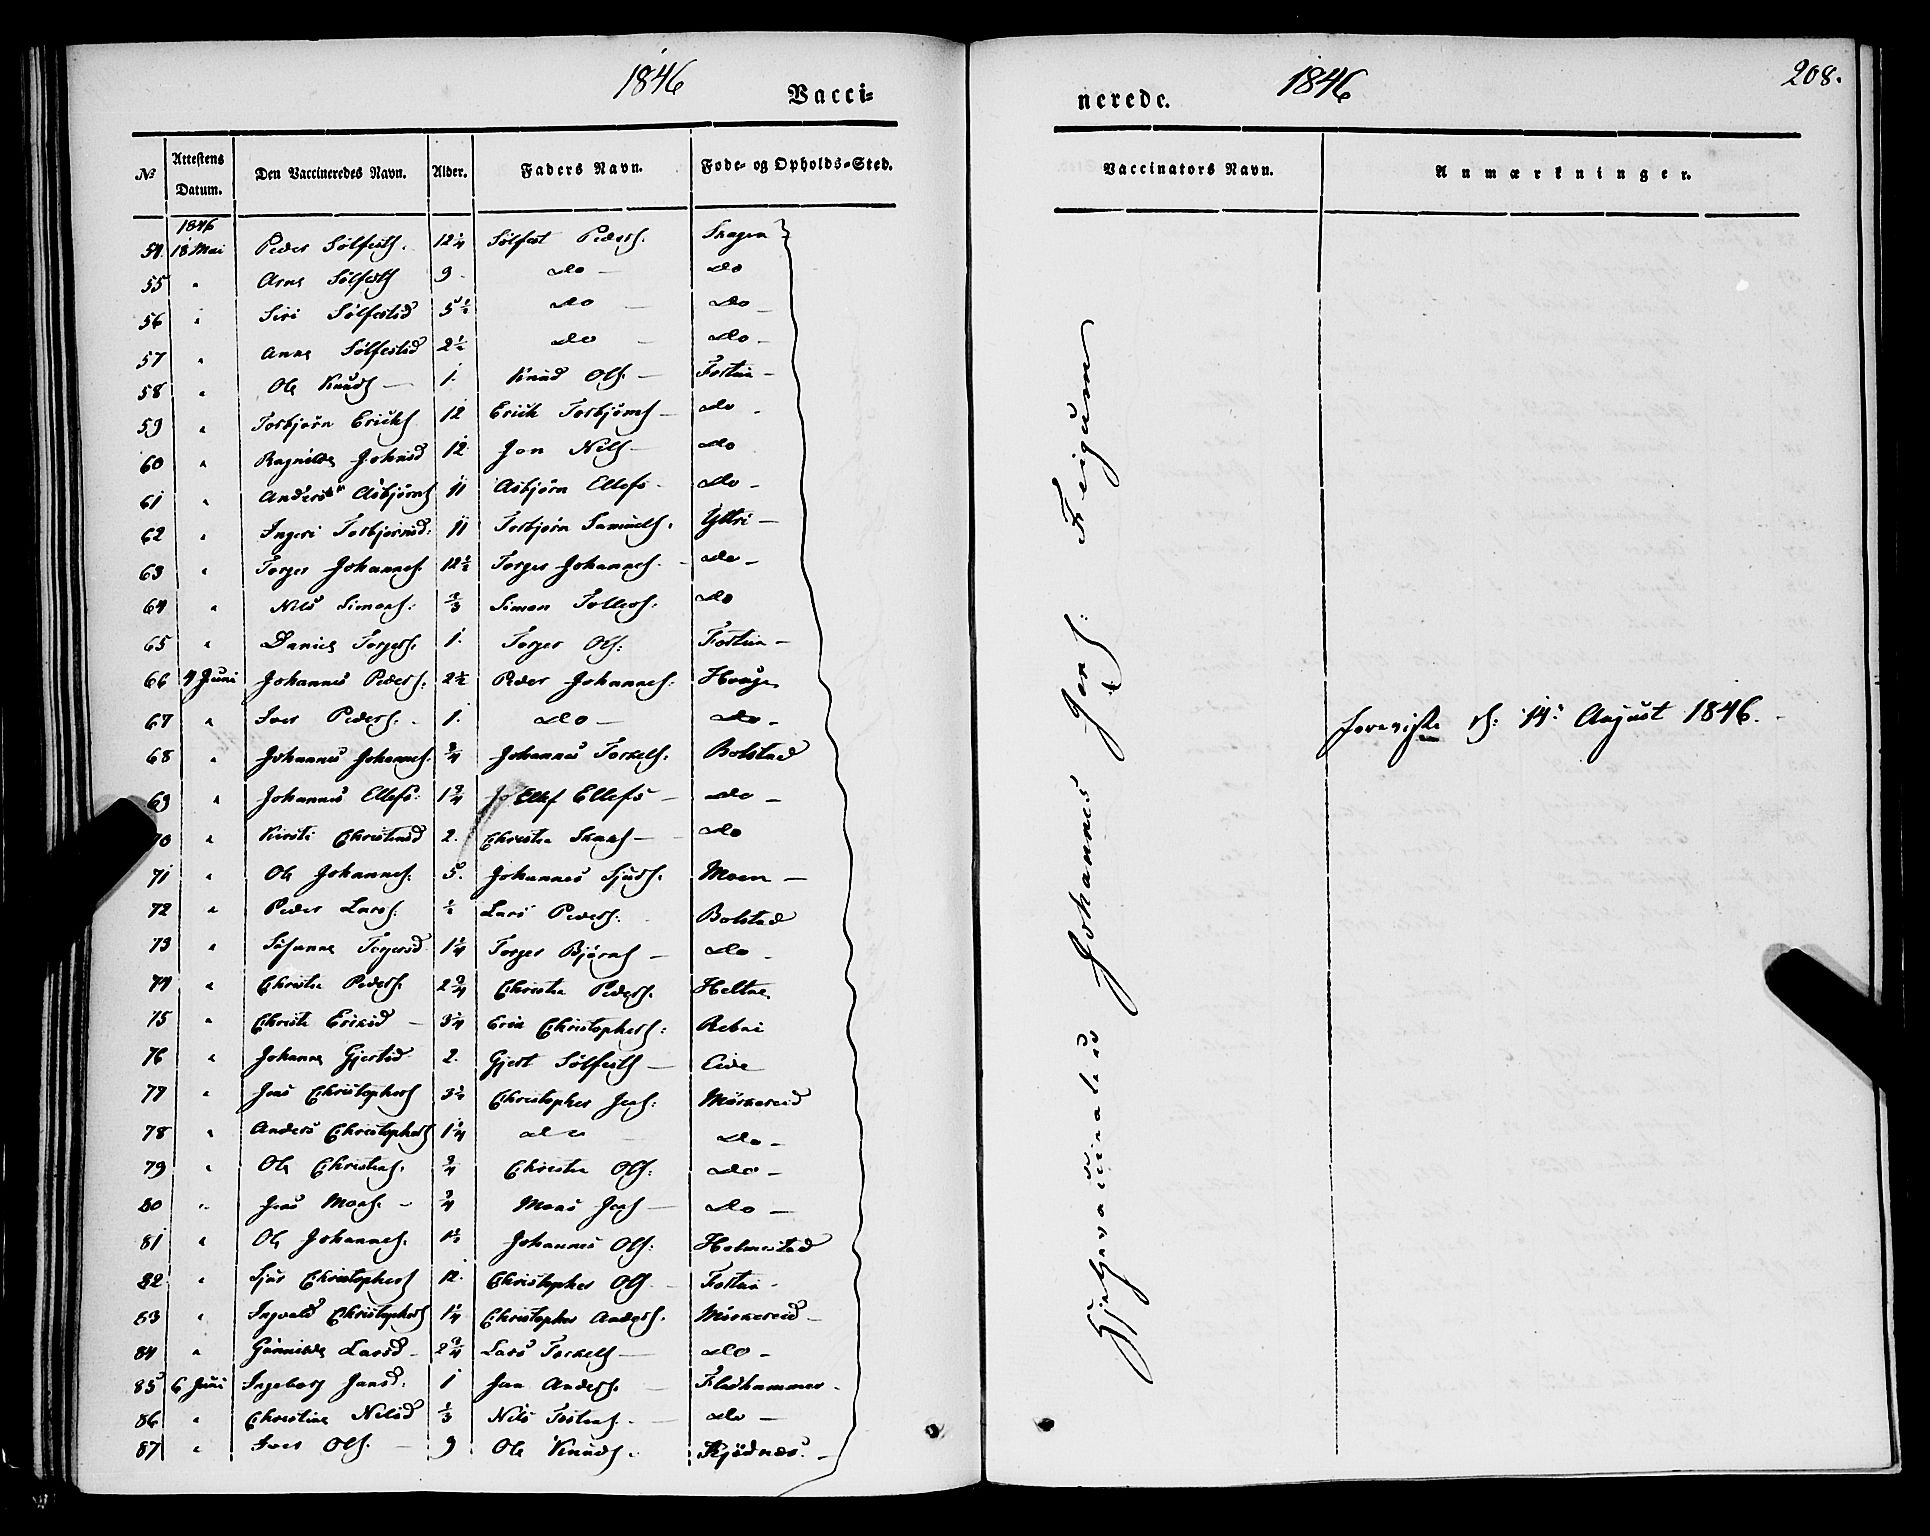 1846
Vacci=
№ Attestens Datum. Den Vaccineredes Navn. Alder. Faders Navn. Føde- og Opholds-Sted.
1846
54. 18 Mai Peder Sølfests. 12 1/4 Sølfest Peders. Skagen
55 " Arne Sølfests 9 - do - do
56 " Siri Sølfestsd 5 1/2 do - do -
57 " Anne Sølfestsd 2 1/2 do - do -
58 " Ole Knuds - 1. Knud Ols. - Fortun -
59 " Torbjørn Ericks 12 Erick Torbjørns - do -
60 " Ragnilde Johnsd 12 Jon Nils - do
61 " Anders Asbjørns 11 Asbjørn Ellefs - do -
62 " Ingeri Torbjørnsd: 11 Torbjørn Samuels. Yttri -
63 " Torger Johannes. 12 1/2 Torger Johannes. - do -
64 " Nils Simons. 2/3 Simon Tollefs: do
65 " Daniel Torgers. 1. Torger Ols: Fortun -
66 4 Juni Johannes Peders. 2 1/2 Peder Johannes: Houge
67 " Iver Peders. - 1. do - do -
68 " Johannes Johannes. 3/4 Johannes Torkels. Bolstad
69 " Johannes Ellefs: 1 3/4 Ellef Ellefs - do -
70 " Kirsti Christensd 2. do
71 " Ole Johannes. 5. Johannes Sjurs. Moen -
72 " Peder Lars. 1/2 Lars Peders. Bolstad
73 " Susanne Torgersd 1 1/4 Torger Bjørns - do -
74 " Christen Peders. 2 3/4 Christen Peders.
75 " Christi Ericksd - 3 1/4 Erik Christophers:
76 " Johanne Gjertsd 2. Gjert Sølfests - Eide
77 " Jens Christophers 3 1/2 Christopher Jens: Mörkereid
78 " Anders Christophers 1 1/4 do - do -
79 " Ole Christens. 3/4 Christen Ols: do -
80 " Jens Mons. - 3/4 Mons Jens - do -
81 " Ole Johannes. 1 1/2 Johannes Ols: Holmestad
82 " Sjur Christophers 12. Christopher Ols - Fortun -
83 " Ingvald Christophers 1 1/4 Christopher Anders. Mörkereid -
84 " Gunnilde Larsd - 2 3/4 Lars Torkels - do -
85 6 Juni Ingeborg Jansd: 1 Jan Anders. - Fladhammer -
86 " Christine Nilsd 1/3 Nils Tostens. - do -
87 " Iver Ols. - 9 Ole Knuds. Kjødnæs. -
nerede.
1846
208.
Vaccinators Navn. Anmærkninger.
Hjelpevaccinateur Johannes Jens: Feigum
foreviist d: 14: August 1846. -